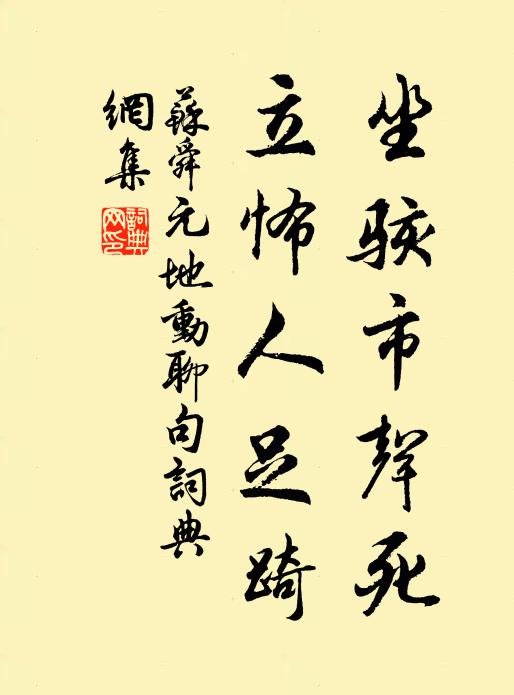 坐駭市聲死
立怖人足踦
蘇舜元地動聊句詞典
網集
詞典網印